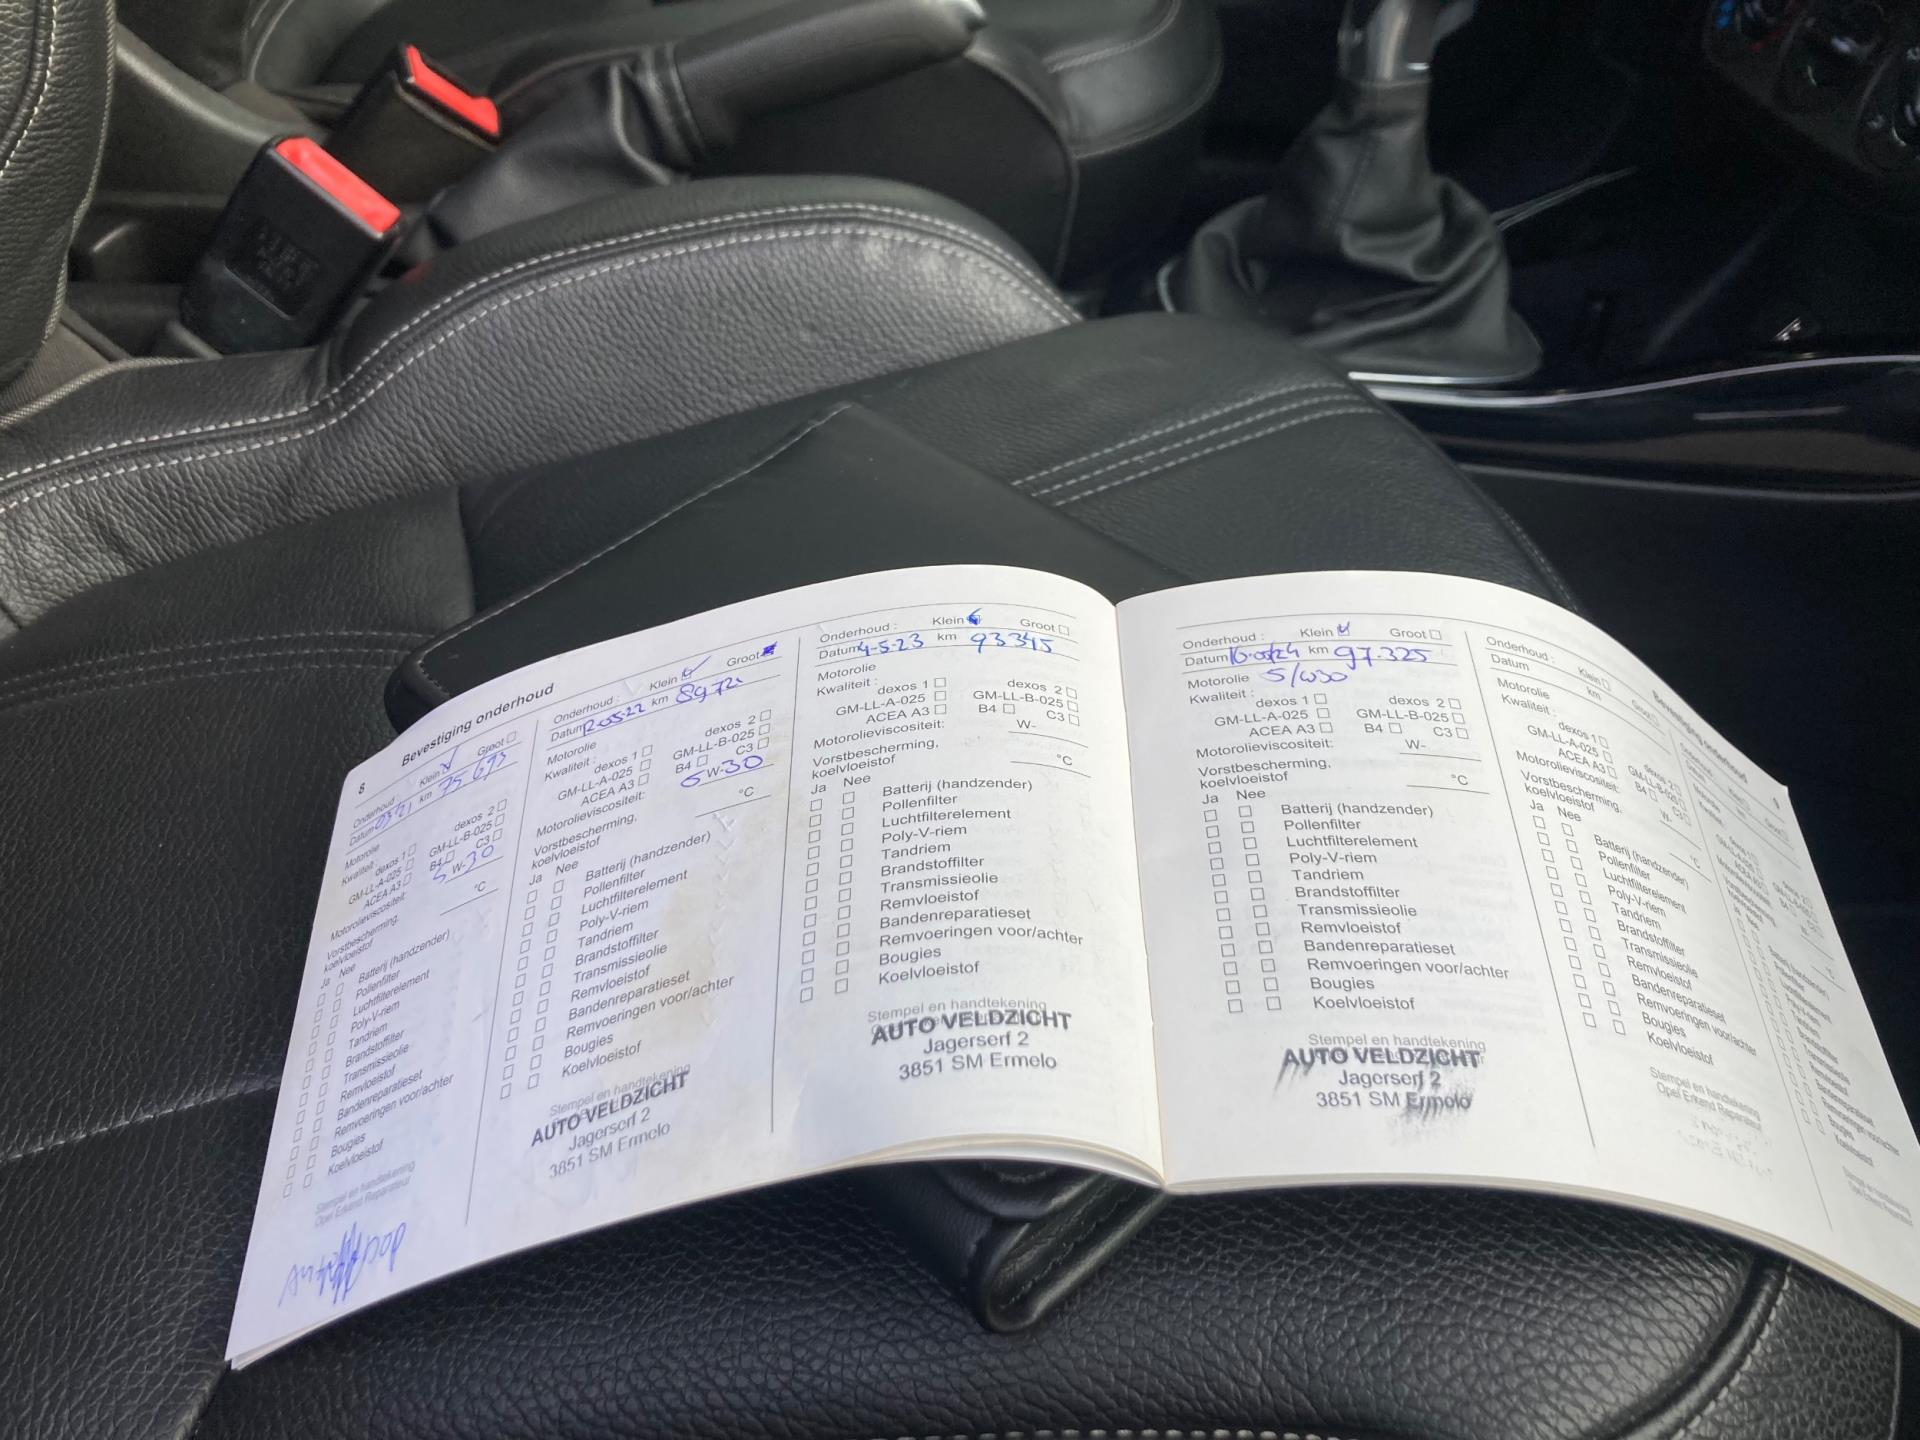 8 Bevestiging onderhoud
Onderhoud: Klein Groot
Datum 03-21 km 75 693
Motorolie
Kwaliteit: dexos 1 dexos 2
GM-LL-A-025 GM-LL-B-025
ACEA A3 B4 C3
Motorolieviscositeit: 5 W-30
Vorstbescherming, koelvloeistof °C
Ja Nee
Batterij (handzender)
Pollenfilter
Luchtfilterelement
Poly-V-riem
Tandriem
Brandstoffilter
Transmissieolie
Remvloeistof
Bandenreparatieset
Remvoeringen voor/achter
Bougies
Koelvloeistof
Stempel en handtekening
Opel Erkend Reparateur
Onderhoud: Klein Groot
Datum km
Motorolie
Kwaliteit: dexos 1 dexos 2
GM-LL-A-025 GM-LL-B-025
ACEA A3 B4 C3
Motorolieviscositeit: 5 W-30
Vorstbescherming,
koelvloeistof °C
Ja Nee
Batterij (handzender)
Pollenfilter
Luchtfilterelement
Poly-V-riem
Tandriem
Brandstoffilter
Transmissieolie
Remvloeistof
Bandenreparatieset
Remvoeringen voor/achter
Bougies
Koelvloeistof
Stempel en handtekening
AUTO VELDZICHT
Jagerserf 2
3851 SM Ermelo
Onderhoud: Klein Groot
Datum 4-5-23 km 93345
Motorolie
Kwaliteit: dexos 1 dexos 2
GM-LL-A-025 GM-LL-B-025
ACEA A3 B4 C3
Motorolieviscositeit: W-
Vorstbescherming,
koelvloeistof °C
Ja Nee
Batterij (handzender)
Pollenfilter
Luchtfilterelement
Poly-V-riem
Tandriem
Brandstoffilter
Transmissieolie
Remvloeistof
Bandenreparatieset
Remvoeringen voor/achter
Bougies
Koelvloeistof
Stempel en handtekening
AUTO VELDZICHT
Jagerserf 2
3851 SM Ermelo
Onderhoud: Klein Groot
Datum 16-05-24 km 97.325
Motorolie 5/W30
Kwaliteit: dexos 1 dexos 2
GM-LL-A-025 GM-LL-B-025
ACEA A3 B4 C3
Motorolieviscositeit: W-
Vorstbescherming,
koelvloeistof °C
Ja Nee
Batterij (handzender)
Pollenfilter
Luchtfilterelement
Poly-V-riem
Tandriem
Brandstoffilter
Transmissieolie
Remvloeistof
Bandenreparatieset
Remvoeringen voor/achter
Bougies
Koelvloeistof
Stempel en handtekening
AUTO VELDZICHT
Jagerserf 2
3851 SM Ermelo
Bevestiging onderhoud 9
Onderhoud: Klein Groot
Datum km
Motorolie
Kwaliteit: dexos 1
GM-LL-A-025
ACEA A3 B4 C3
Motorolieviscositeit: W-
Vorstbescherming,
koelvloeistof °C
Ja Nee
Batterij (handzender)
Pollenfilter
Luchtfilterelement
Poly-V-riem
Tandriem
Brandstoffilter
Transmissieolie
Remvloeistof
Bandenreparatieset
Remvoeringen voor/achter
Bougies
Koelvloeistof
Stempel en handtekening
Opel Erkend Reparateur